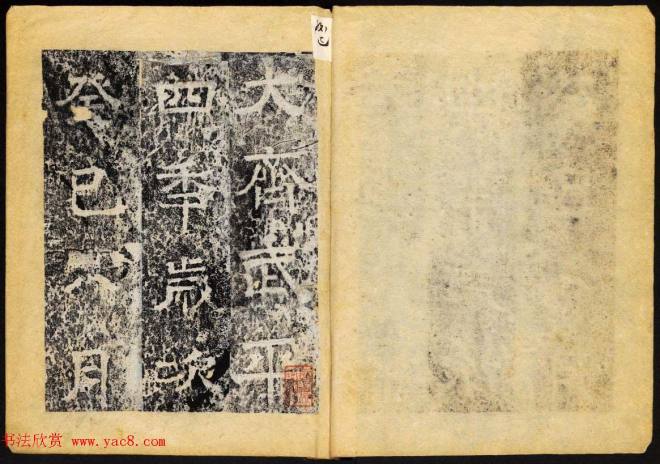 大齊武平
四年歲次
癸巳六月
书法欣赏 www.yac8.com